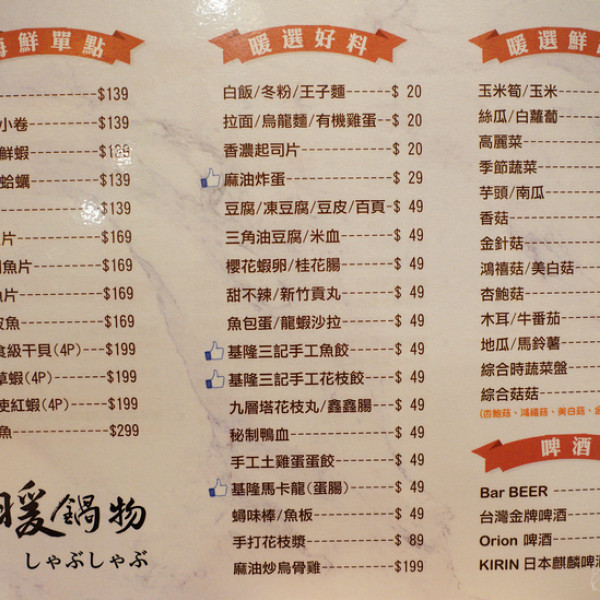 海鮮單點
$139
小卷-----$139
鮮蝦-----$139
蛤蠣-----$139
$139
片-----$169
魚片-----$169
魚片-----$169
皮魚-----$169
食級干貝(4P)---$199
草蝦(4P)-----$199
使紅蝦(4P)----$199
魚-----$299
暖鍋物
しゃぶしゃぶ
暖選好料
白飯/冬粉/王子麵------$ 20
拉面/烏龍麵/有機雞蛋--$ 20
香濃起司片------------$ 20
麻油炸蛋-------------$ 29
豆腐/凍豆腐/豆皮/百頁-$ 49
三角油豆腐/米血-------$ 49
櫻花蝦卵/桂花腸-------$ 49
甜不辣/新竹貢丸-------$ 49
魚包蛋/龍蝦沙拉-------$ 49
基隆三記手工魚餃------$ 49
基隆三記手工花枝餃----$ 49
九層塔花枝丸/鑫鑫腸---$ 49
秘制鴨血-------------$ 49
手工土雞蛋蛋餃--------$ 49
基隆馬卡龍(蛋腸)------$ 49
蟳味棒/魚板----------$ 49
手打花枝漿-----------$ 89
麻油炒烏骨雞---------$199
暖選鮮
玉米筍/玉米
絲瓜/白蘿蔔
高麗菜
季節蔬菜
芋頭/南瓜
香菇
金針菇
鴻禧菇/美白菇
杏鮑菇
木耳/牛番茄
地瓜/馬鈴薯
綜合時蔬菜盤
綜合菇菇
(杏鮑菇、鴻禧菇、美白菇、金
啤酒
Bar BEER
台灣金牌啤酒
Orion 啤酒
KIRIN 日本麒麟啤酒